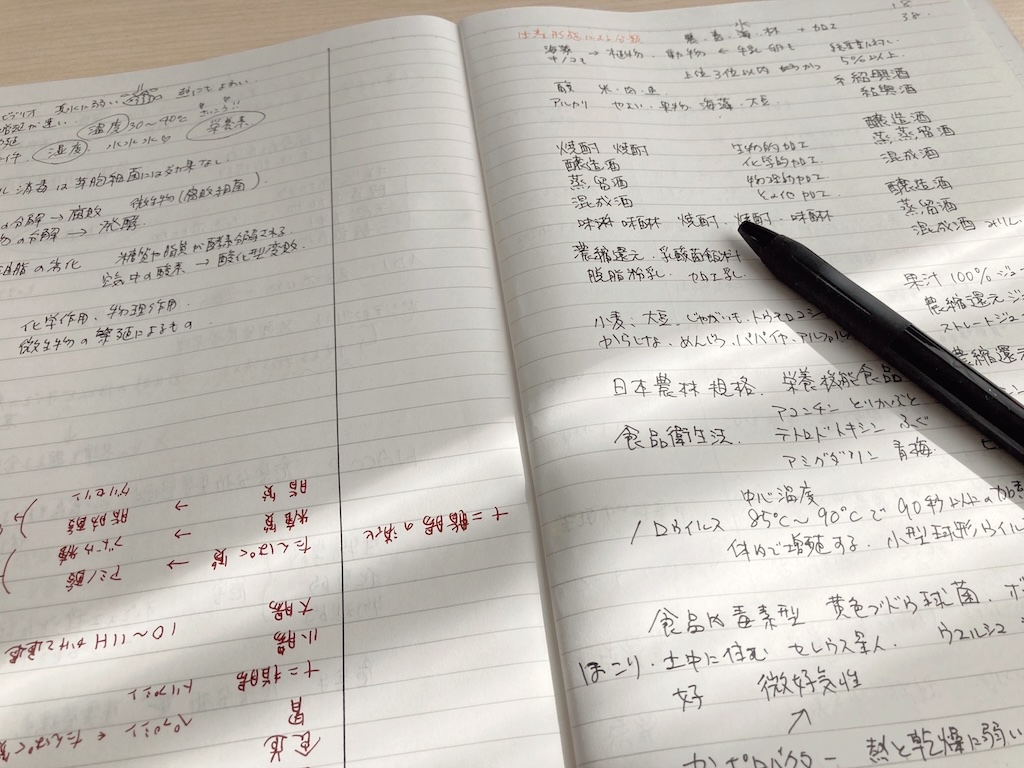 ビブリオ 真水に弱い 熱にもよわい
温度 30〜40℃ 栄養素
湿度 水水水
消毒は芽胞細菌には効果なし
の分解→腐敗 微生物(腐敗細菌)
物の分解→発酵
油脂の劣化 糖質や脂質が酵素分解される
空気中の酸素→酸化型変敗
化学作用、物理作用
微生物の繁殖によるもの
十二指腸の消化
たんぱく質 → アミノ酸
糖質 → ブドウ糖
脂質 → 脂肪酸
脂質 → グリセリン
食道
胃 ペプシン ← たんぱく質
十二指腸 トリプシン
小腸
大腸
農・畜・水・林 + 加工
18
38
海藻 キノコも → 植物 動物 ← 牛乳・卵も
上位3位以内
5%以上
酸 米・肉・魚
アルカリ やさい・果物 海藻・大豆
紹興酒
紹興酒
焼酎 焼酎 生物的加工 醸造酒
醸造酒 化学的加工 蒸留酒
蒸留酒 物理的加工 混成酒
混成酒 その他加工 醸造酒
味淋 味醂 焼酎・焼酎・味醂 蒸留酒
混成酒 みりん
濃縮還元・乳酸菌飲料
脱脂粉乳・加工乳
果汁100%ジュー
濃縮還元ジ
ストレートジュー
濃縮還元
小麦、大豆、じゃがいも、トウモロコシ
からしな、めんじつ、パパイヤ、アルファル
日本農林規格、栄養機能食品
アコニチン とりかぶと
食品衛生法、 テトロドトキシン ふぐ
アミグダリン 青梅
中心温度
ノロウイルス 85℃〜90℃で90秒以上の加熱
体内で増殖する、小型球形ウイル
食品内毒素型 黄色ブドウ球菌、ボ
ほこり・土中に住む セレウス菌、 ウエルシュ
好 微好気性
カンピロバクター 熱と乾燥に弱い